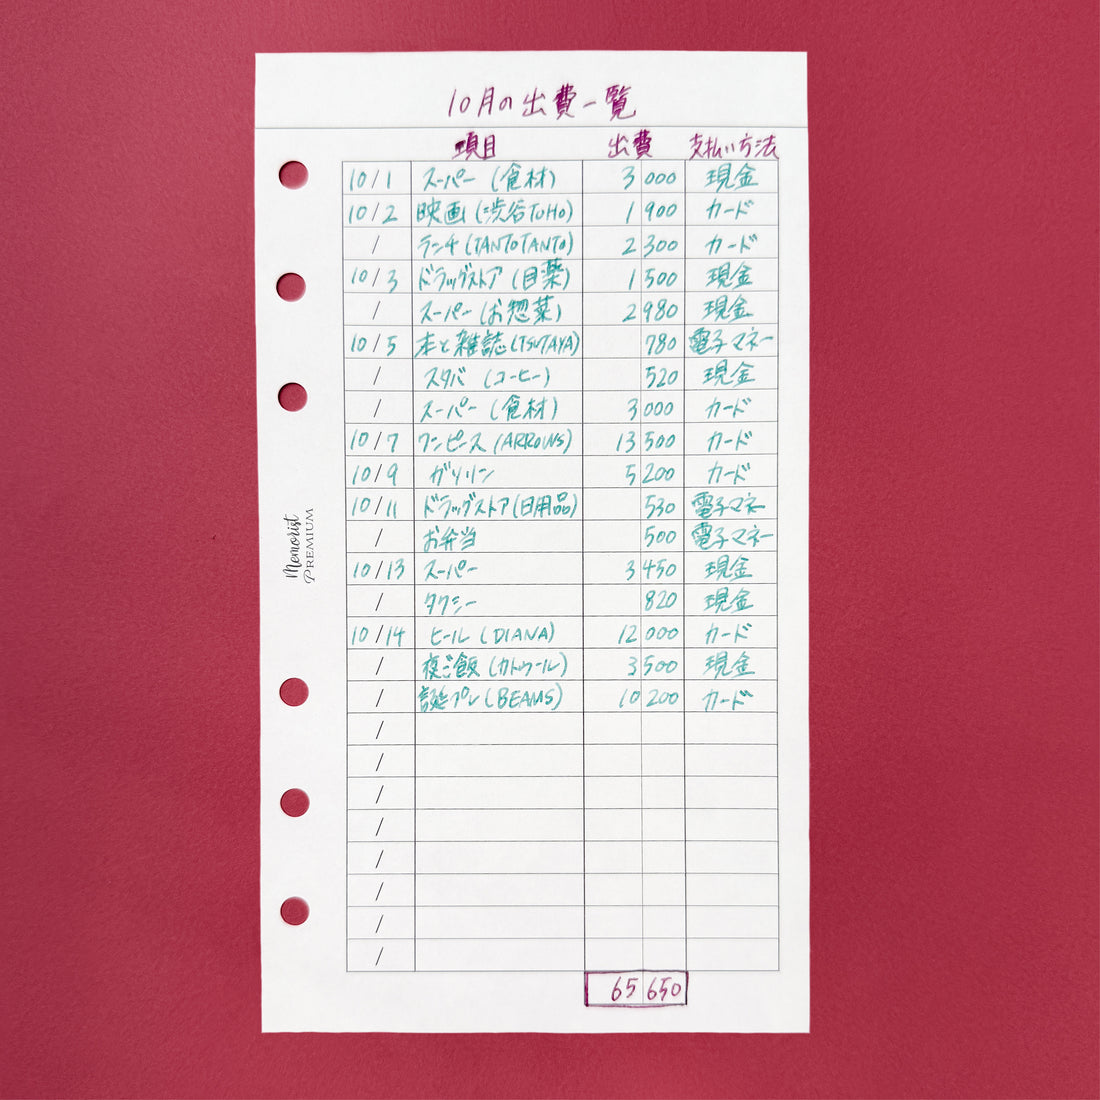 10月の出費一覧
項目 出費 支払い方法
10/1 スーパー (食材) 3 000 現金
10/2 映画 (渋谷TOHO) 1 900 カード
/ ランチ (TANTOTANTO) 2 300 カード
10/3 ドラッグストア (目薬) 1 500 現金
/ スーパー (お惣菜) 2 980 現金
10/5 本と雑誌 (TSUTAYA) 780 電子マネー
/ スタバ (コーヒー) 520 現金
/ スーパー (食材) 3 000 カード
10/7 ワンピース (ARROWS) 13 500 カード
10/9 ガソリン 5 200 カード
10/11 ドラッグストア (日用品) 530 電子マネー
/ お弁当 500 電子マネー
10/13 スーパー 3 450 現金
/ タクシー 820 現金
10/14 ヒール (DIANA) 12 000 カード
/ 夜ご飯 (カトゥール) 3 500 現金
/ 誕プレ (BEAMS) 10 200 カード
/
/
/
/
/
/
/
/
65 650
Memorist
PREMIUM